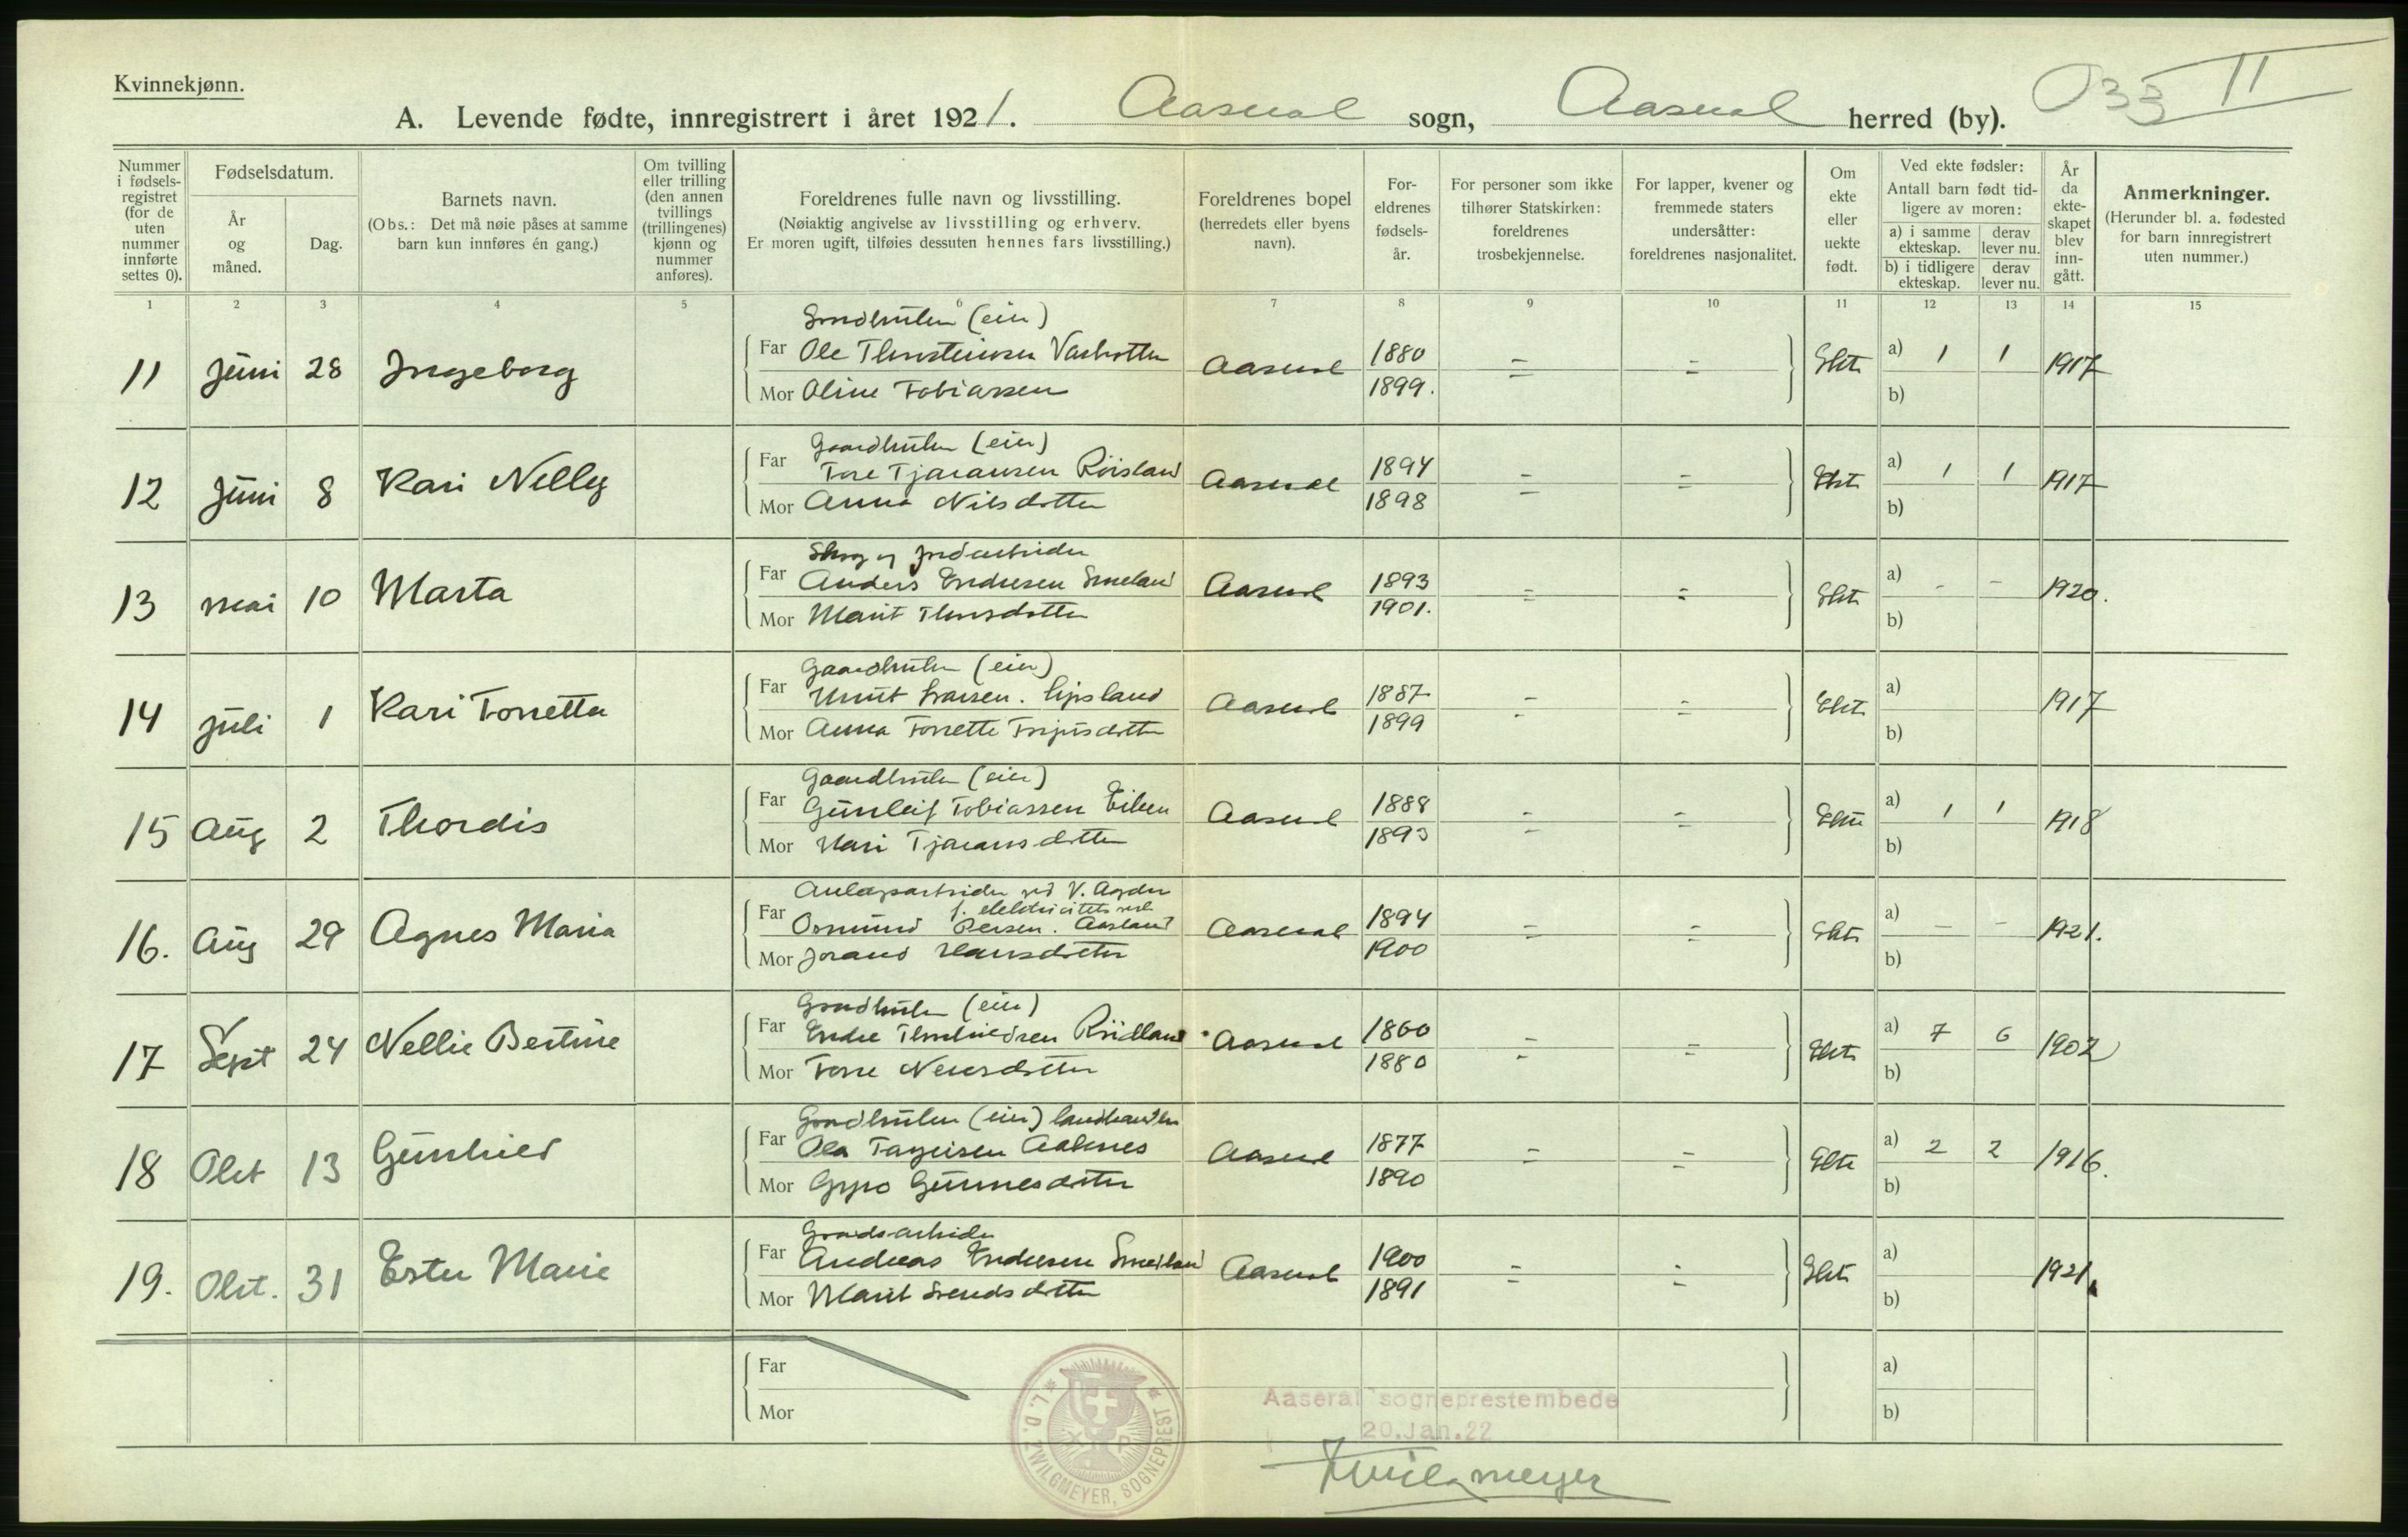 Kvinnekjønn.
A. Levende fødte, innregistrert i året 1921. Aaseral sogn, Aaseral herred (by). 033 II
Nummer i fødselsregistret (for de uten nummer innførte settes 0).
Fødselsdatum.
År og måned.
Dag.
Barnets navn.
(Obs.: Det må nøie påses at samme barn kun innføres én gang.)
Om tvilling eller trilling (den annen tvillings (trillingenes) kjønn og nummer anføres).
Foreldrenes fulle navn og livsstilling.
(Nøiaktig angivelse av livsstilling og erhverv.
Er moren ugift, tilføies dessuten hennes fars livsstilling.)
Foreldrenes bopel (herredets eller byens navn).
Foreldrenes fødselsår.
For personer som ikke tilhører Statskirken: foreldrenes trosbekjennelse.
For lapper, kvener og fremmede staters undersåtter: foreldrenes nasjonalitet.
Om ekte eller uekte født.
Ved ekte fødsler:
Antall barn født tidligere av moren:
a) i samme ekteskap. derav lever nu.
b) i tidligere ekteskap. derav lever nu.
År da ekteskapet blev inngått.
Anmerkninger.
(Herunder bl. a. fødested for barn innregistrert uten nummer.)
1 2 3 4 5 6 7 8 9 10 11 12 13 14 15
Gaardbruker (eier)
11 Juni 28 Ingeborg Far Ole Thorsteinsen Aaseral 1880 = = Ekte a) 1 1 1917
Mor Oline Tobiassen 1899. b)
Gaardbruker (eier)
12 Juni 8 Kari Nelly Far Tore Tjaransen Røisland Aaseral 1894 = = Ekte a) 1 1 1917
Mor Anna Nilsdotter 1898 b)
Skog og jordarbeider
13 mai 10 Marta Far Anders Endresen Smeland Aaseral 1893 = = Ekte a) - - 1920.
Mor Marit Thorsdotter 1901. b)
Gaardbruker (eier)
14 juli 1 Kari Torretta Far Knut Ivarsen. Ljosland Aaseral 1887 = = Ekte a) 1917
Mor Anna Torrette 1899 b)
Gaardbruker (eier)
15 Aug 2 Thordis Far Gunleif Tobiassen Eiken Aaseral 1888 = = Ekte a) 1 1 1918
Mor Kari Tjaransdotter 1893 b)
Anlægsarbeider ved V. Agder
f. elektricitetsverk
16. Aug 29 Agnes Maria Far Osmund Persen. Aasland Aaseral 1894 = = Ekte a) - - 1921.
Mor Jorand Hansdotter 1900 b)
Gaardbruker (eier)
17 Sept 24 Nellie Bertine Far Endre Aaseral 1860 = = Ekte a) 7 6 1902
Mor Torre 1880 b)
Gaardbruker (eier) landhandler
18 Okt 13 Gunhild Far Ola Tarjeisen Aaknes Aaseral 1877 = = Ekte a) 2 2 1916.
Mor Gyro Gunnesdotter 1890 b)
Gaardsarbeider
19. Okt. 31 Ester Marie Far Andreas Endresen Smeland Aaseral 1900 = = Ekte a) 1921.
Mor Marit Svendsdotter 1891 b)
Far a)
Mor b)
L. D. ZWILGMEYER, SOGNEPREST
Aaseral sogneprestembede
20.Jan.22
Zwilgmeyer